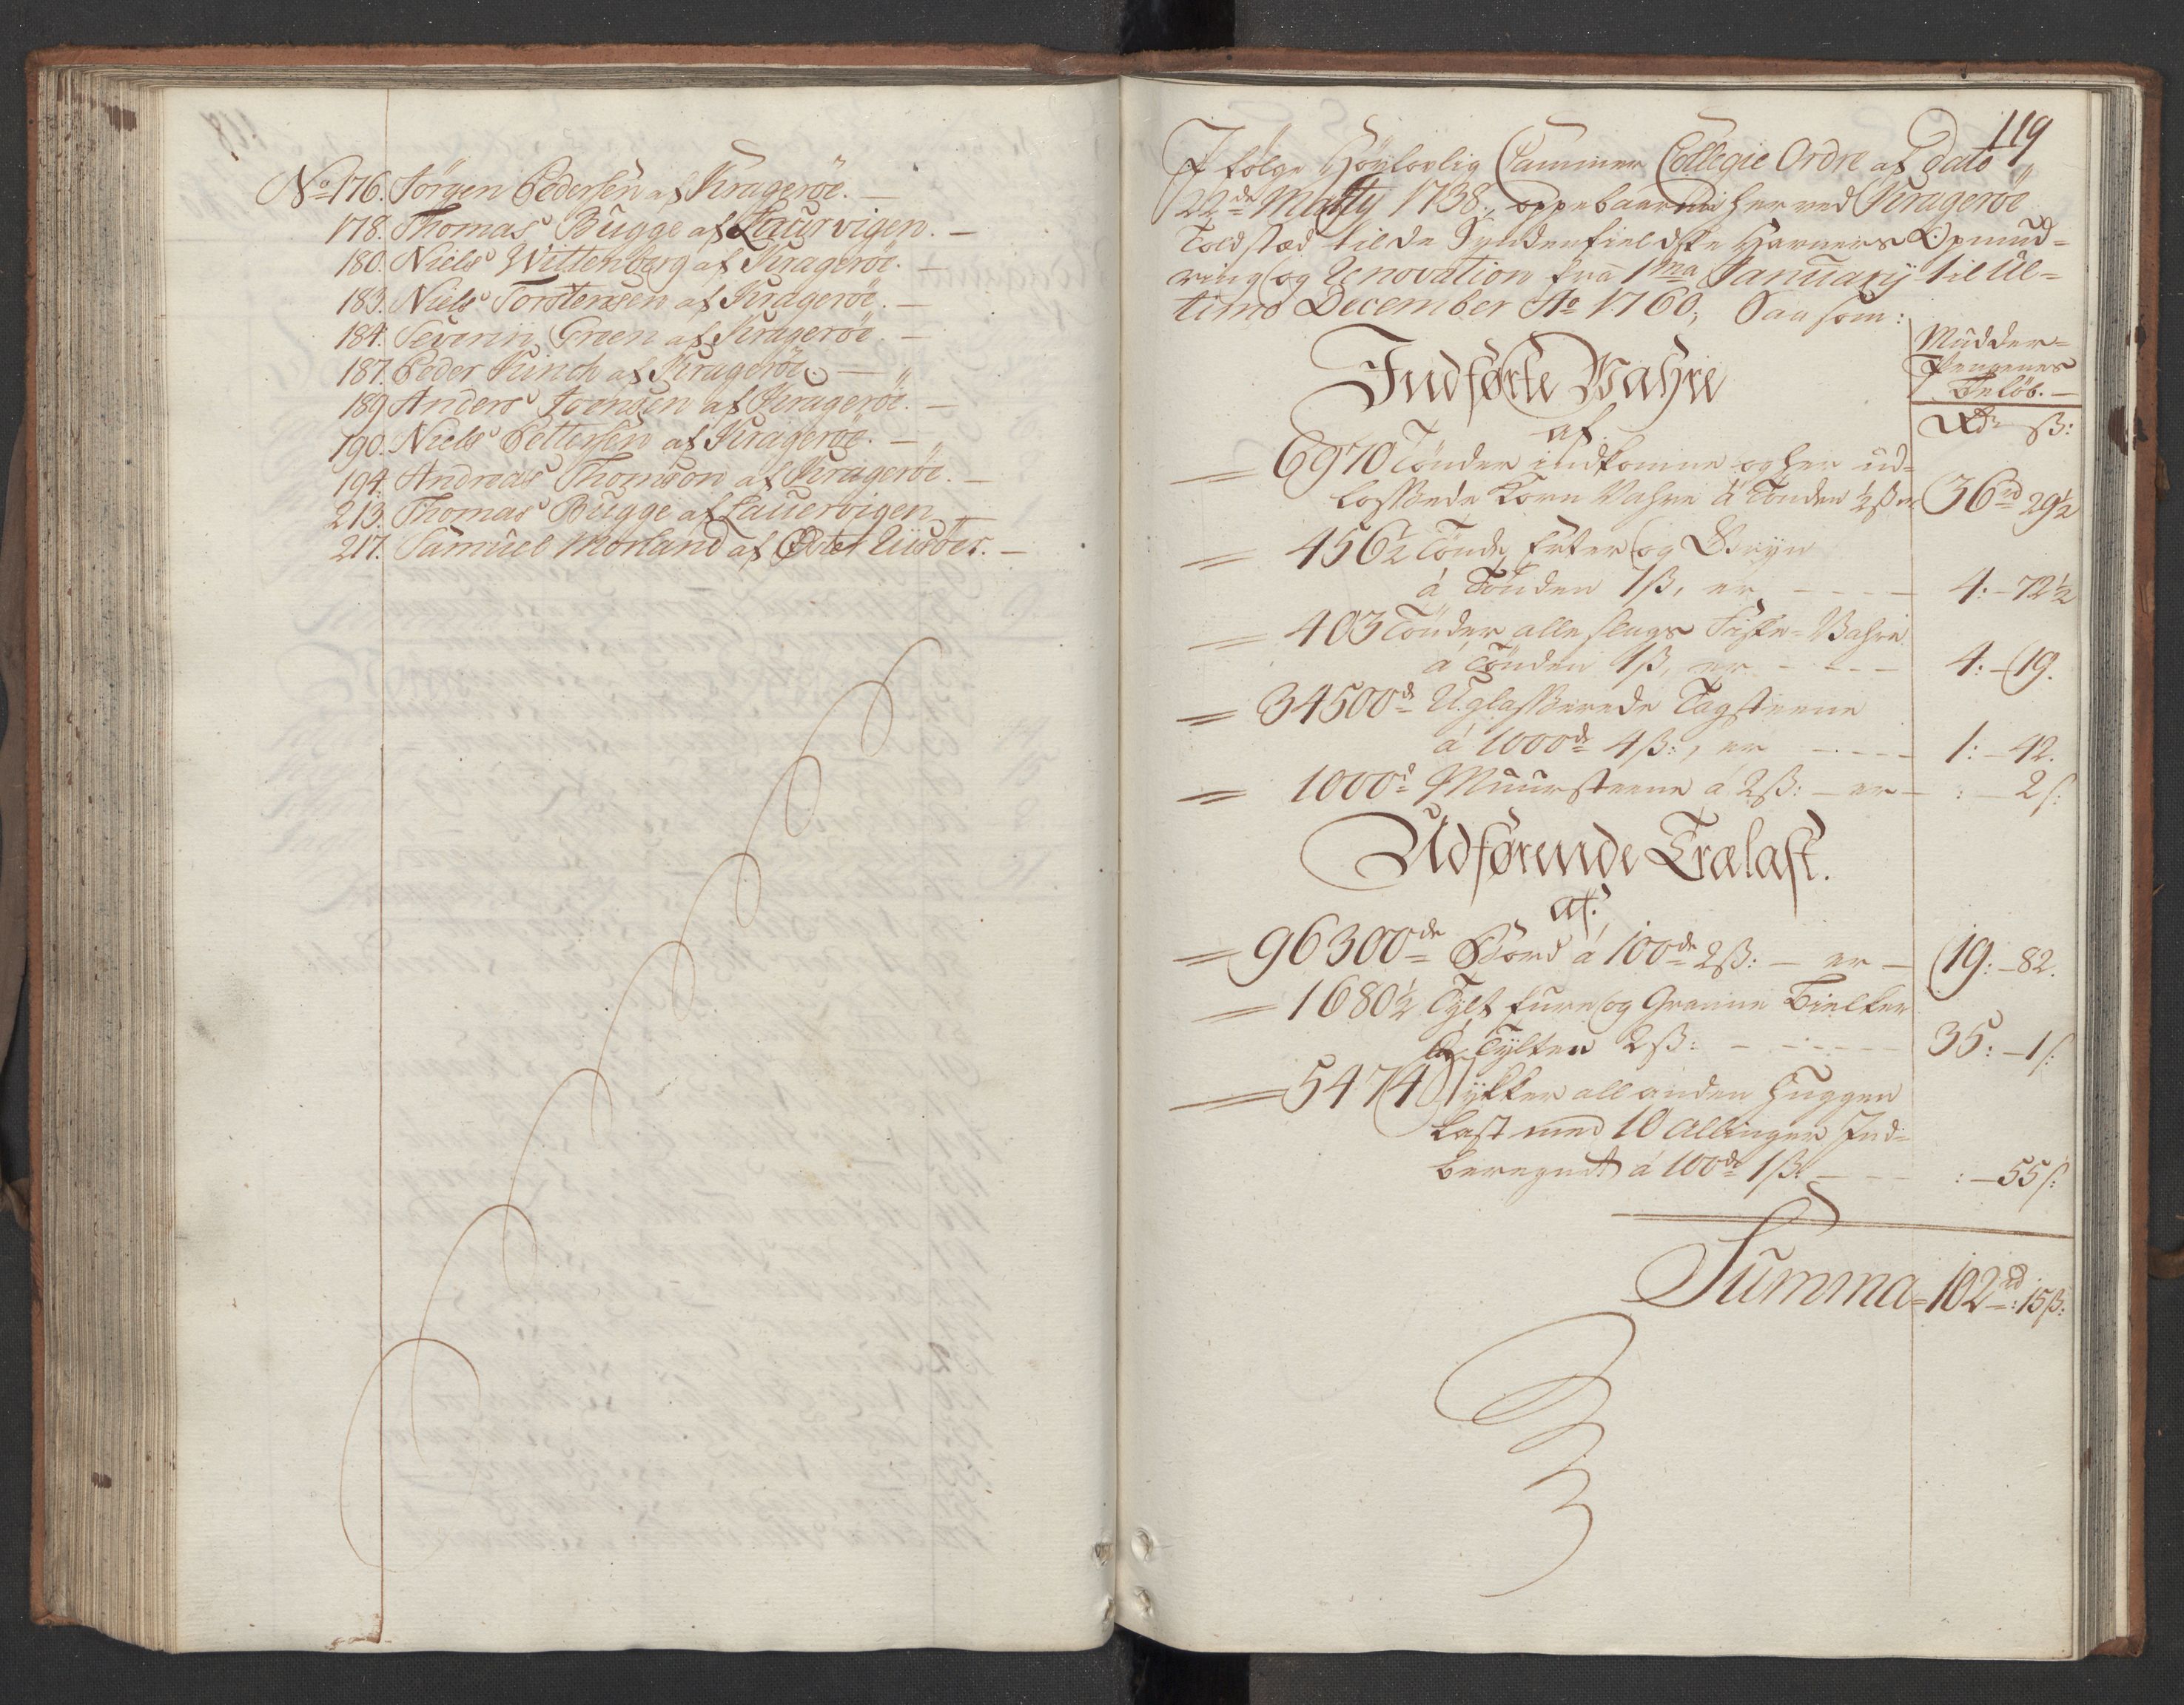 No 176. Jørgen Pedersen af Kragerøe. —
178. Thomas Bugge af Laurvigen. —
180. Niels Wittenberg af Kragerøe. —
183. Niels Torstensen af Kragerøe. —
184. Severin Green af Kragerøe —
187. Peder Kinch af Kragerøe. —
189 Anders Joensen af Kragerøe. —
190. Niels Pettersen af Kragerøe. —
194. Andreas Thomson af Kragerøe. —
213. Thomas Bugge af Lauervigen —
217. Samuel Morland af Øster Riisöer. —
119
I følge Høylovlig Cammer Collegie Ordre af dato
22de Martij 1738., oppebaaren her ved Kragerøe
Toldsted til de Syndenfieldske Havners Opmud=
ring og Renovation fra 1ma Januarij til Ul=
timo December Ao 1760, Saasom:
Mudder=
Pengenes
Beløb. —
Indførte Vahre
af
Rdr ß:
6970 Tønder indkomne og her ud=
lossede Korn Vahre á Tønden ½ ß er
36rd 29½
456½ Tønde Erter og Gryn
á Tønden 1 ß, er - - - -
4: - 72½
403 Tønder alle slags Fiske=Vahre
á Tønden 1 ß, er - - - -
4: - 19.
34500de Uglasserede Tagsteene
á 1000de 4 ß:, er - - - -
1: - 42.
1000de Muursteene á 2 ß: — er —
: — 2 ß:
Udførende Trælast.
af.
96300de Bord á 100de 2 ß: — er —
19: - 82.
1680½ Tylt furu og Granne Bielker
á Tylten 2 ß: - - - -
35: - 1 ß:
5474 Stykker all anden Huggen
Last med 10 Allinger Ind=
beregnet á 100de 1 ß: - - -
: - 55 ß:
Summa = 102rd: 15 ß: